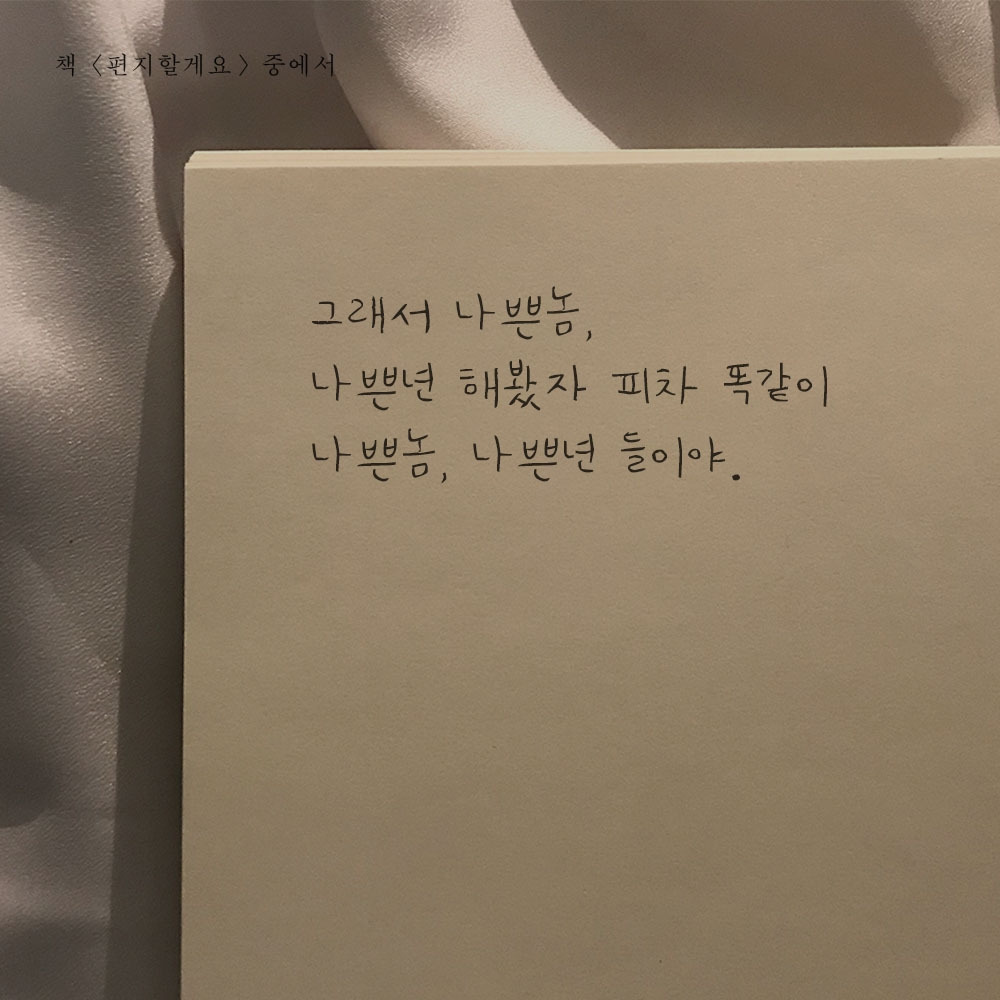 책 〈편지할게요〉 중에서
그래서 나쁜놈,
나쁜년 해봤자 피차 똑같이
나쁜놈, 나쁜년 들이야.